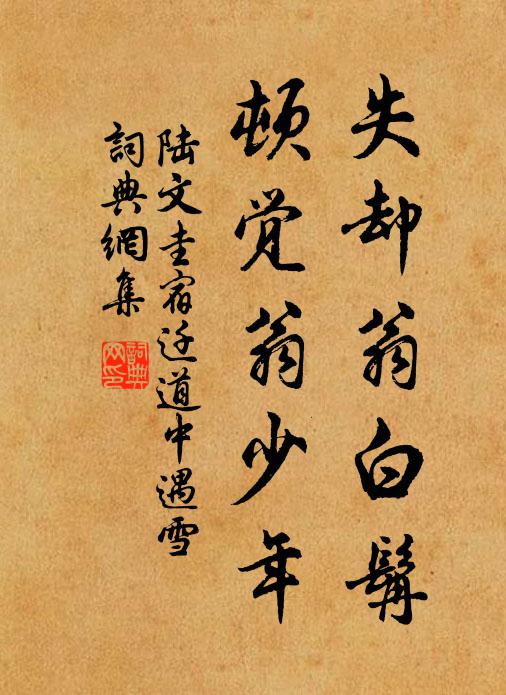 失却翁白髯
頓覺翁少年
陆文圭宿迁道中遇雪
詞典網集
詞典网印